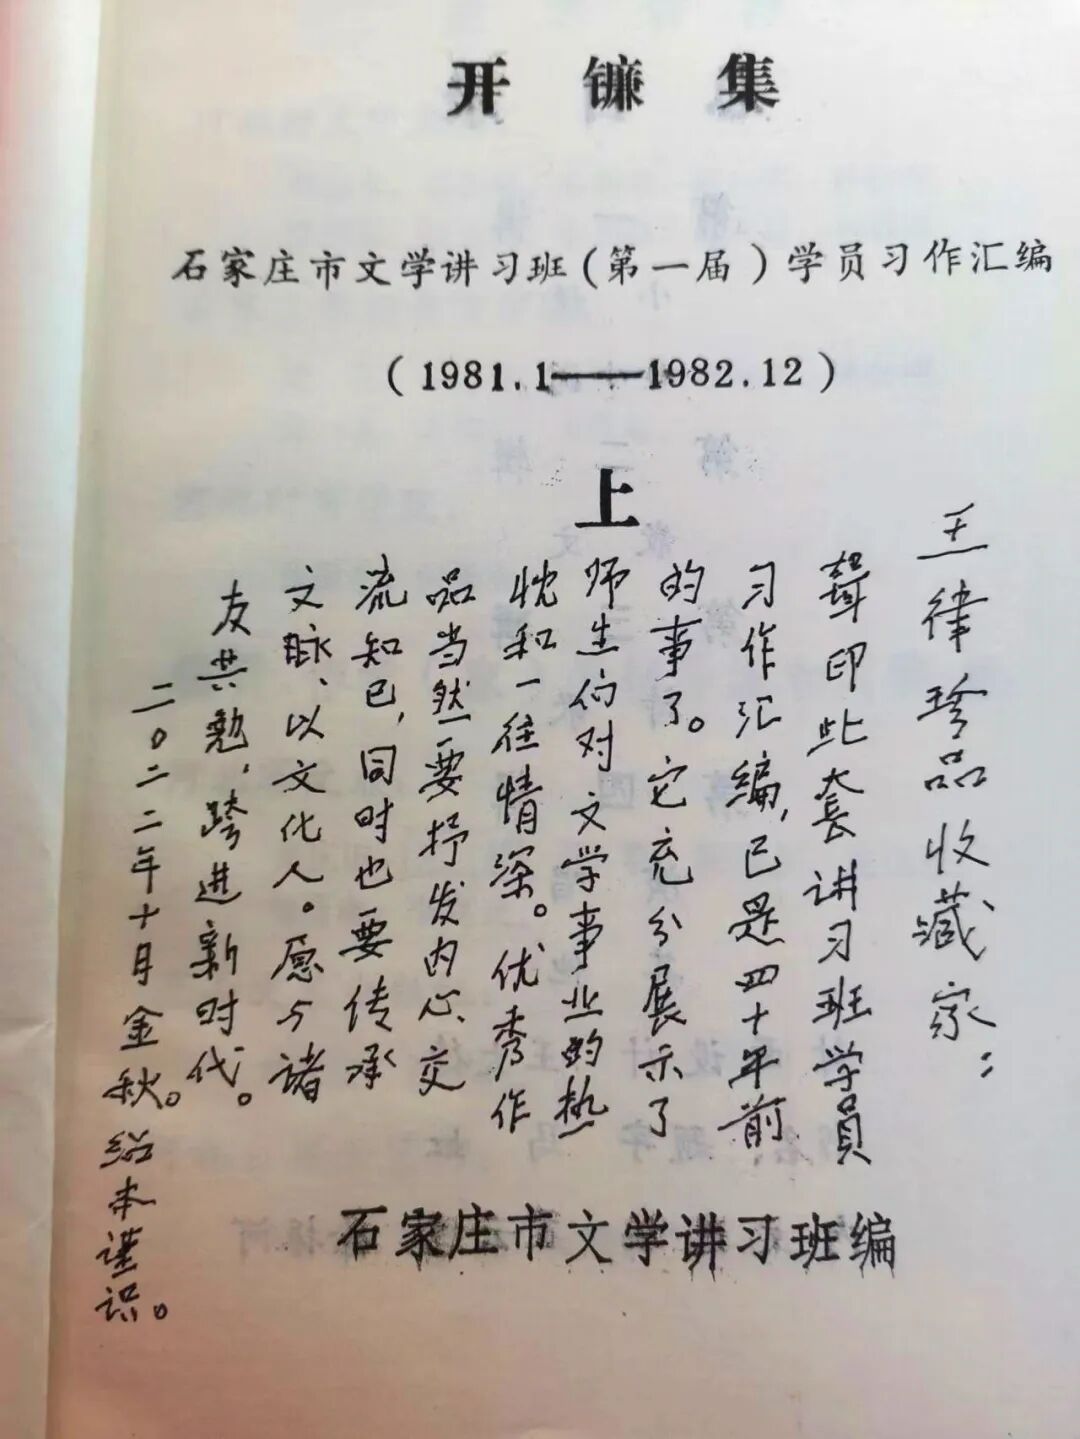 开镰集
石家庄市文学讲习班（第一届）学员习作汇编
（1981.1——1982.12）
上
王律珍品收藏家：
印此套讲习班学员
习作汇编，已是四十年前
的事了。它充分展示了
师生们对文学事业的热
忱和一往情深。优秀作
品当然要抒发内心、交
流知己，同时也要传承
文脉、以文化人。愿与诸
友共勉，跨进新时代。
二〇二二年十月金秋。
绍本谨识。
石家庄市文学讲习班编